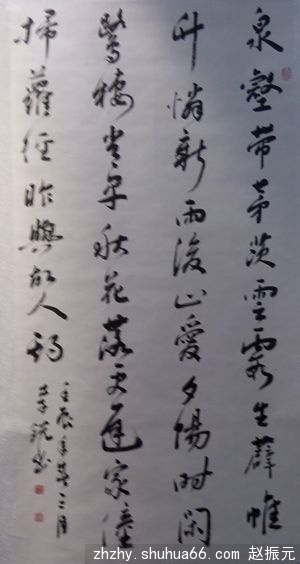 泉壑帶茅茨雲霞生薜帷
竹憐新雨後山愛夕陽時閑
鷺棲常早秋花落更遲家僮
掃蘿徑昨與故人期
壬辰年春三月
李 书
zhzhy.shuhua66.com 赵振元